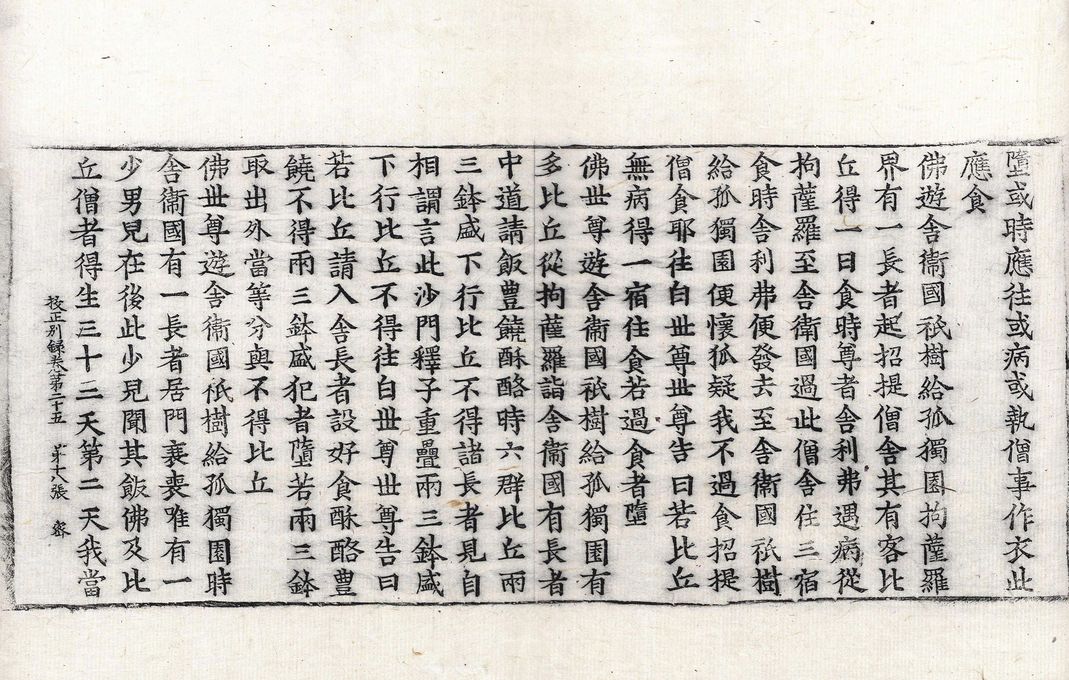 墮或時應往或病或執僧事作衣此
應食
佛遊舍衞國祇樹給孤獨園拘薩羅
界有一長者起招提僧舍其有客比
丘得一日食時尊者舍利弗遇病從
拘薩羅至舍衛國過此僧舍住三宿
食時舍利弗便發去至舍衛國祇樹
給孤獨園便懷狐疑我不過食招提
僧食耶往白世尊世尊告曰若比丘
無病得一宿住食若過食者墮
佛世尊遊舍衛國祇樹給孤獨園有
多比丘從拘薩羅詣舍衞國有長者
中道請飯豊饒酥酪時六群比丘兩
三鉢盛下行比丘不得諸長者見自
相謂言此沙門釋子重疊兩三鉢盛
下行比丘不得往白世尊世尊告曰
若比丘請入舍長者設好食酥酪豊
饒不得兩三鉢盛犯者墮若兩三鉢
取出外當等分與不得比丘
佛世尊遊舍衞國祇樹給孤獨園時
舍衞國有一長者居門衰喪唯有一
少男兒在後此少兒聞其飯佛及比
丘僧者得生三十三天第二天我當
校正別錄卷第二十五 第十八張